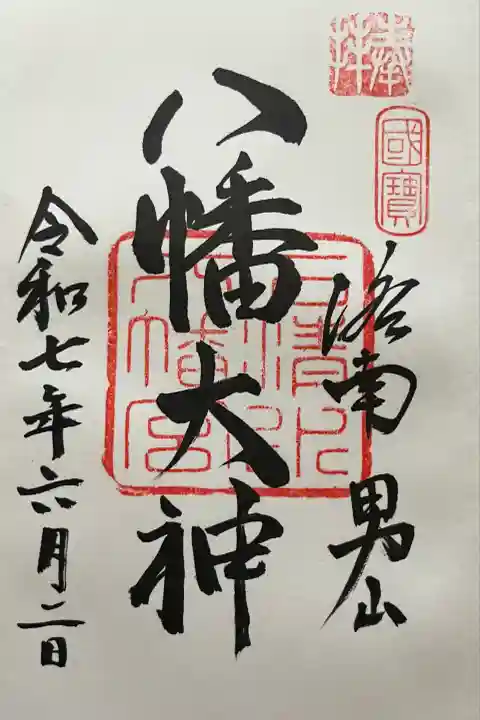 奉拝
國寶
洛南 男山
八幡大神
石清水八幡宮
令和七年六月二日